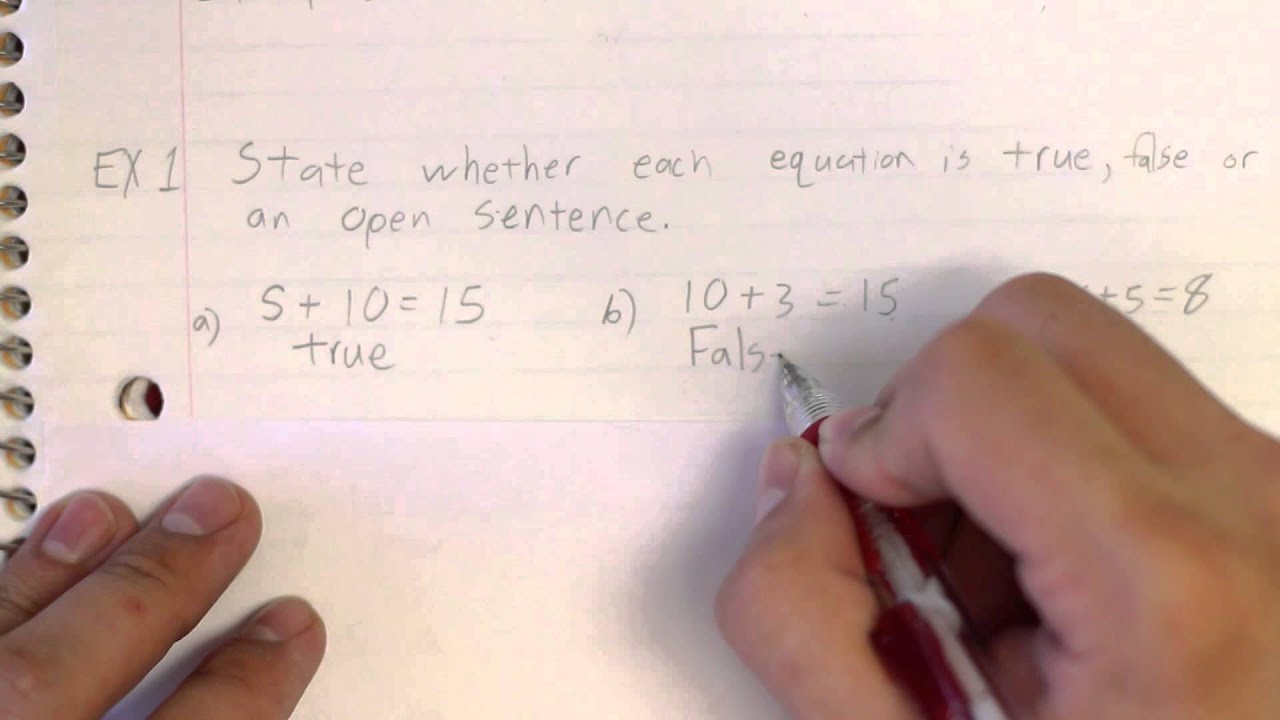 EX 1 State whether each equation is true, false or
an open sentence.
a) 5 + 10 = 15 b) 10 + 3 = 15 +5=8
true Fals